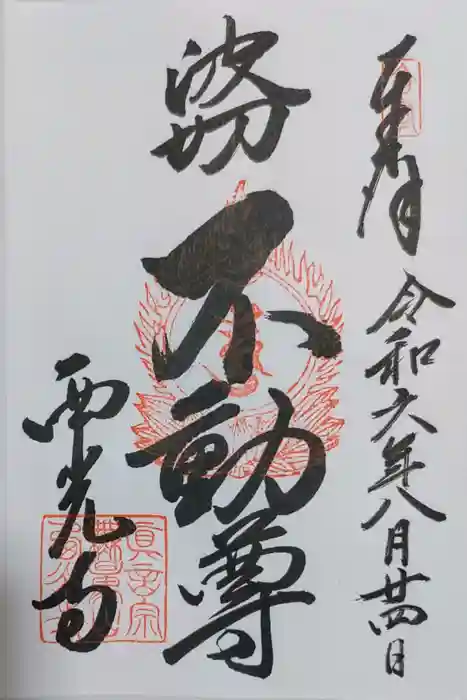 奉拝
令和六年八月廿四日
不動尊
西光寺
真言宗